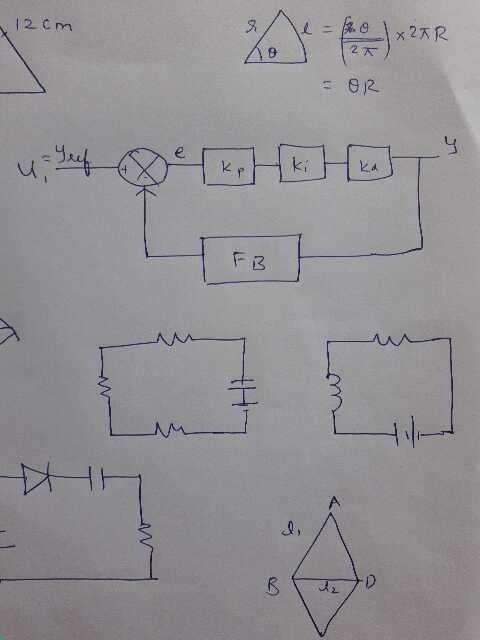 12 cm
r l = (θ / 2π) × 2πR
θ
= θR
U₁ = Yref + - e Kp Ki Kd y
FB
A
l₁
B l₂ D